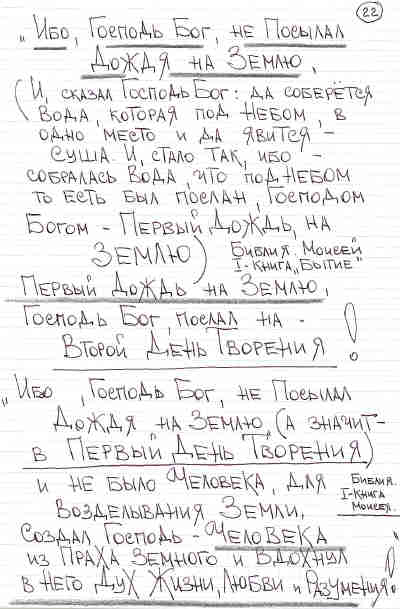 22
„Ибо, Господь Бог, не Посылал
Дождя на Землю,
(И, сказал Господь Бог: да соберётся
вода, которая под Небом, в
одно место и да явится –
суша. И, стало так, ибо –
собралась вода, что под Небом
то есть был послан, Господом
Богом – Первый Дождь, на
Землю)
Библия. Моисей
I-Книга „Бытие"
Первый Дождь на Землю,
Господь Бог, послал на -
Второй День Творения !
„Ибо, Господь Бог, не Посылал
Дождя на Землю, (а значит-
в Первый День Творения)
и не было Человека, для
возделывания Земли,
Библия.
I-Книга
Моисея.
Создал, Господь - Человека
из Праха Земного и Вдохнул
в Него Дух Жизни, Любви и Разумения!"